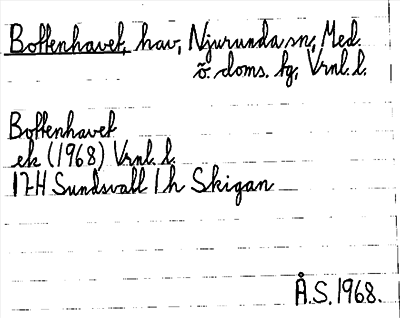 Bottenhavet, hav, Njurunda sn, Med.
ö. doms. fg, Vrnl. l.
Bottenhavet
ek (1968) Vrnl. l.
17H Sundsvall 1h Skigan
Å.S. 1968.